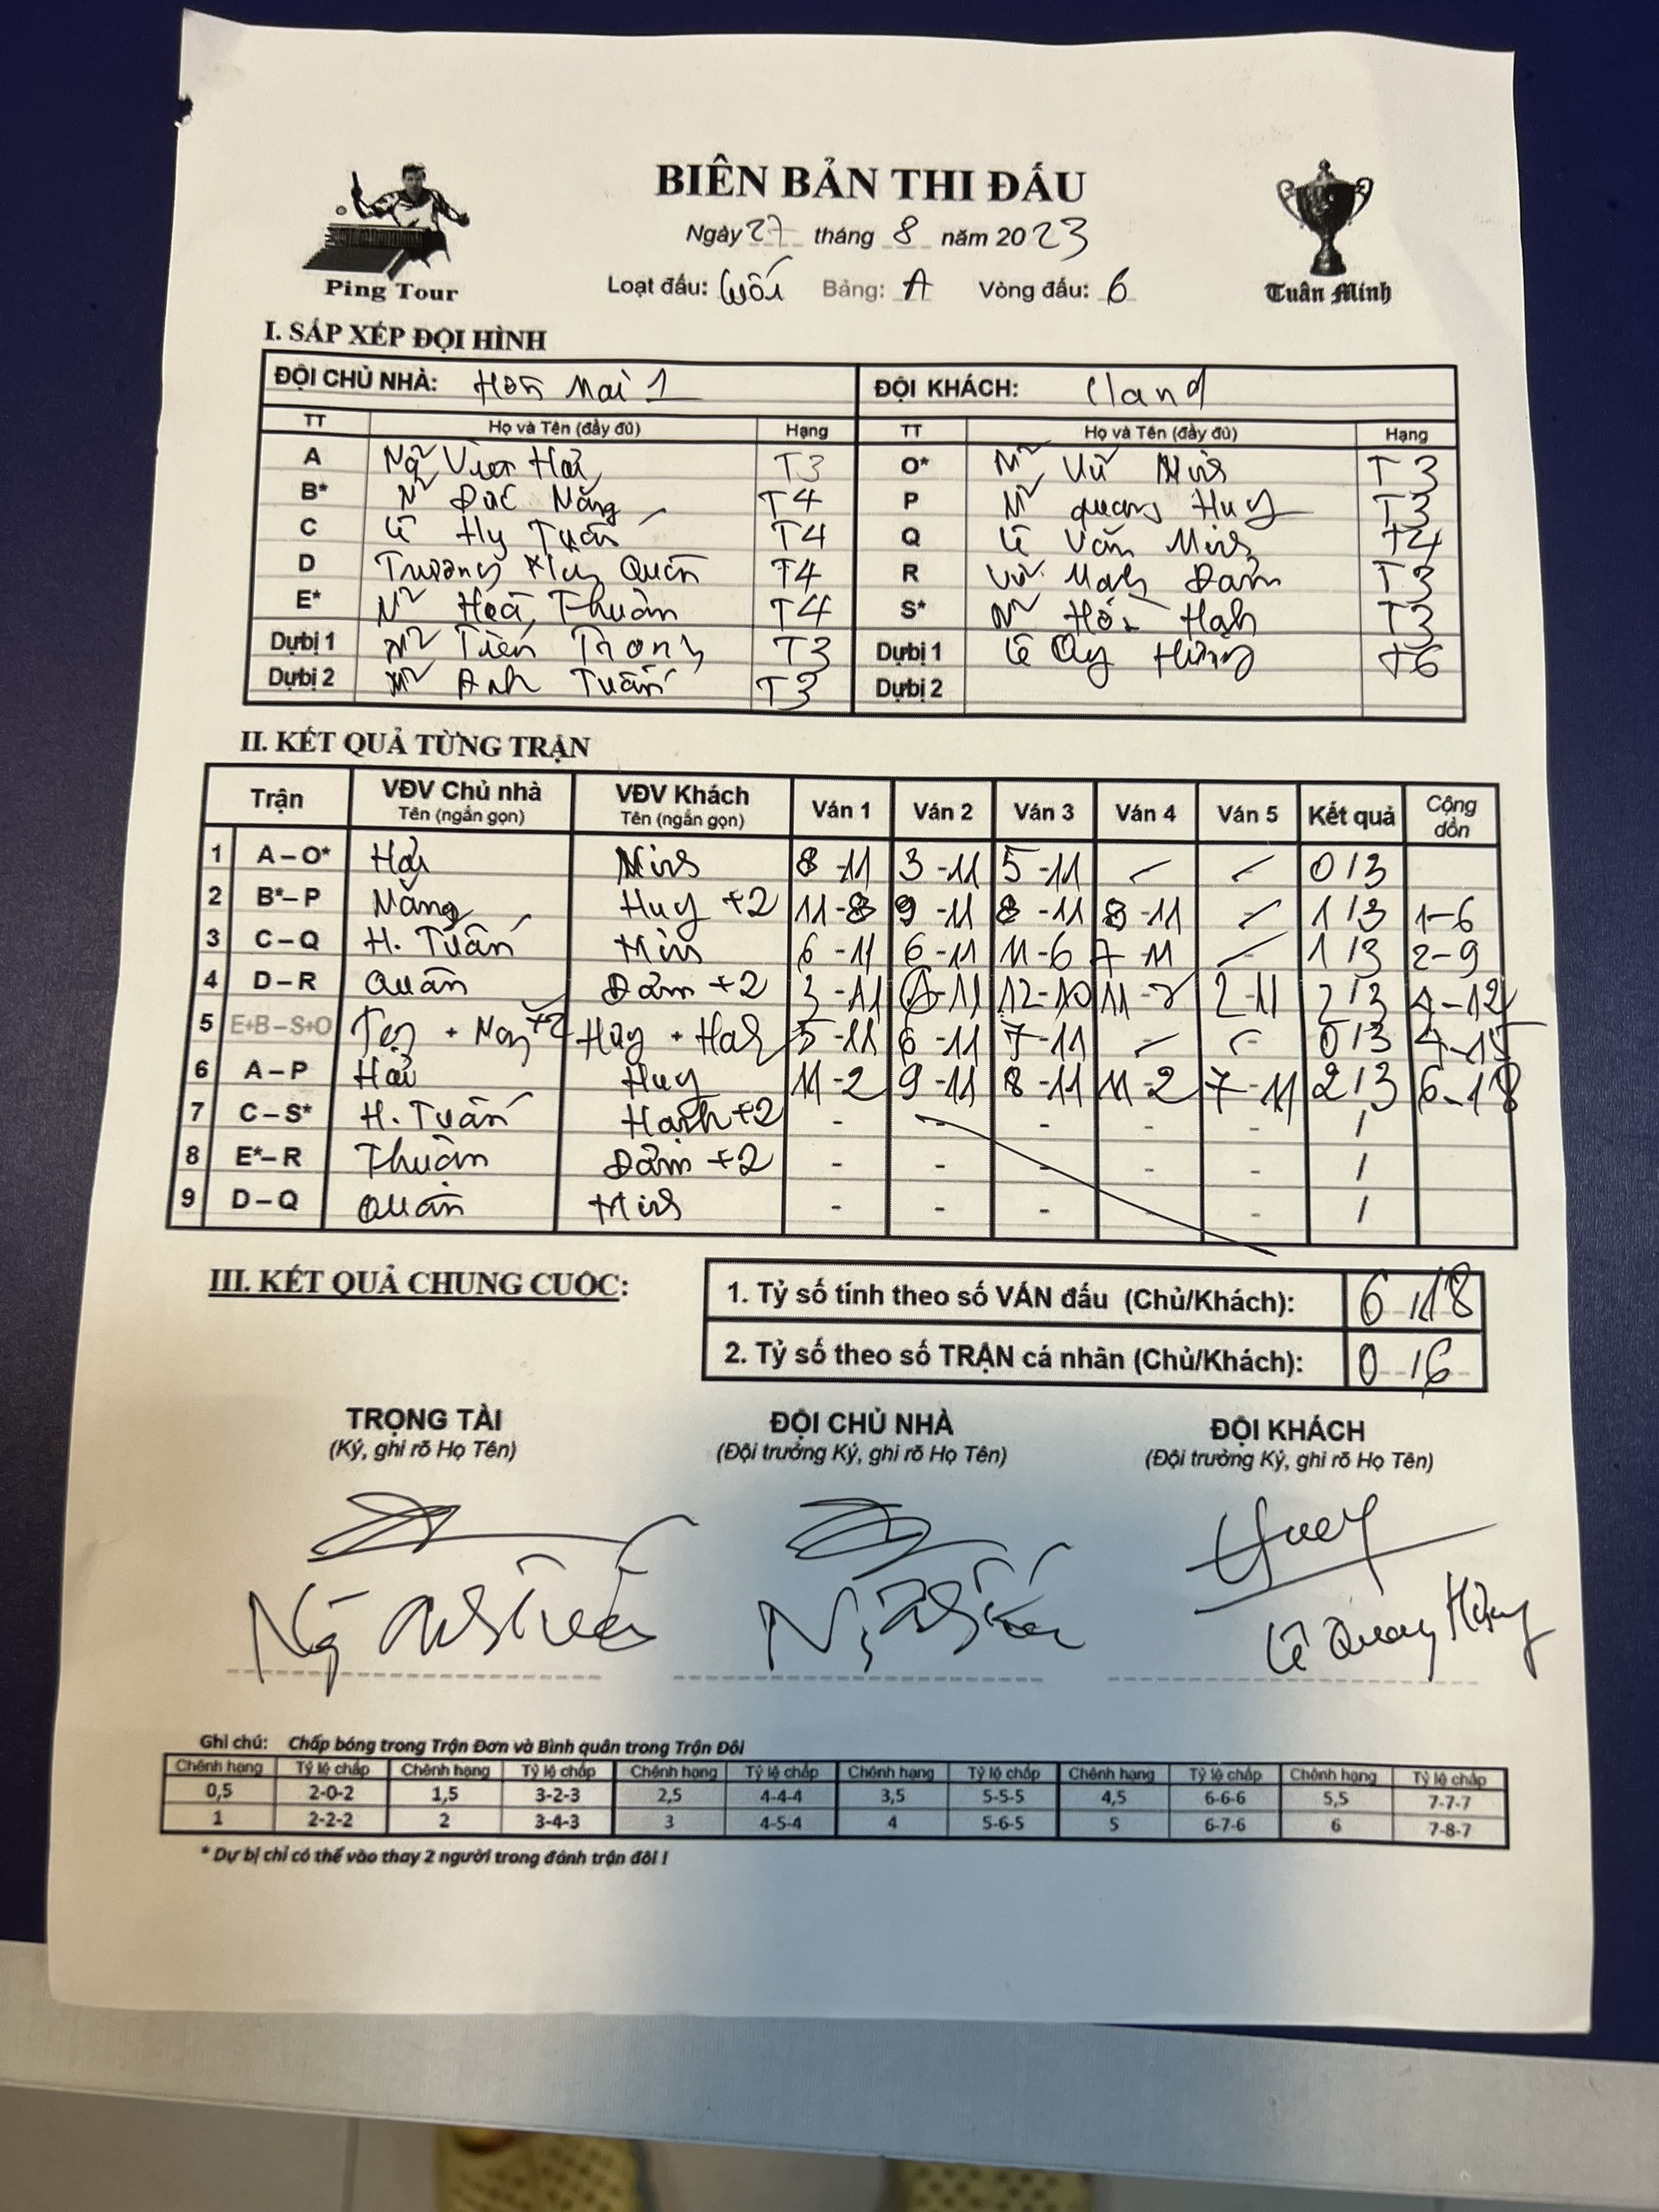 BIÊN BẢN THI ĐẤU
Ngày 27 tháng 8 năm 2023
Ping Tour
Loạt đấu: Bảng: A Vòng đấu: 6
Tuân Minh
I. SẮP XẾP ĐỘI HÌNH
ĐỘI CHỦ NHÀ: Mai 1 ĐỘI KHÁCH: Cland
TT Họ và Tên (đầy đủ) Hạng TT Họ và Tên (đầy đủ) Hạng
A Hải T3 O* Vũ T3
B* Đức Năng T4 P Quang Huy T3
C Lê Hy Tuấn T4 Q Lê Văn T4
D Trương Quân T4 R Vũ Đảm T3
E* Thuận T4 S* Hạnh T3
Dựbị 1 Tiến Trọng T3 Dựbị 1 Lê T6
Dựbị 2 Anh Tuấn T3 Dựbị 2
II. KẾT QUẢ TỪNG TRẬN
Trận VĐV Chủ nhà Tên (ngắn gọn) VĐV Khách Tên (ngắn gọn) Ván 1 Ván 2 Ván 3 Ván 4 Ván 5 Kết quả Cộng dồn
1 A – O* Hải 8-11 3-11 5-11 - - 0/3
2 B*– P Năng Huy +2 11-8 9-11 8-11 8-11 - 1/3 1-6
3 C – Q H. Tuấn 6-11 6-11 11-6 7-11 - 1/3 2-9
4 D – R Quân Đảm +2 3-11 12-10 2-11 2/3 4-12
5 E+B – S+O 5-11 6-11 7-11 - - 0/3 4-15
6 A – P Hải Huy 11-2 9-11 8-11 11-2 7-11 2/3 6-18
7 C – S* H. Tuấn Hạnh +2 - - - - - /
8 E*– R Thuận Đảm +2 - - - - - /
9 D – Q Quân - - - - /
III. KẾT QUẢ CHUNG CUỘC:
1. Tỷ số tính theo số VÁN đấu (Chủ/Khách): 6/18
2. Tỷ số theo số TRẬN cá nhân (Chủ/Khách): 0/6
TRỌNG TÀI ĐỘI CHỦ NHÀ ĐỘI KHÁCH
(Ký, ghi rõ Họ Tên) (Đội trưởng Ký, ghi rõ Họ Tên) (Đội trưởng Ký, ghi rõ Họ Tên)
Lê Quang
Ghi chú: Chấp bóng trong Trận Đơn và Bình quân trong Trận Đôi
Chênh hạng Tỷ lệ chấp Chênh hạng Tỷ lệ chấp Chênh hạng Tỷ lệ chấp Chênh hạng Tỷ lệ chấp Chênh hạng Tỷ lệ chấp Chênh hạng Tỷ lệ chấp
0,5 2-0-2 1,5 3-2-3 2,5 4-4-4 3,5 5-5-5 4,5 6-6-6 5,5 7-7-7
1 2-2-2 2 3-4-3 3 4-5-4 4 5-6-5 5 6-7-6 6 7-8-7
* Dự bị chỉ có thể vào thay 2 người trong đánh trận đôi !